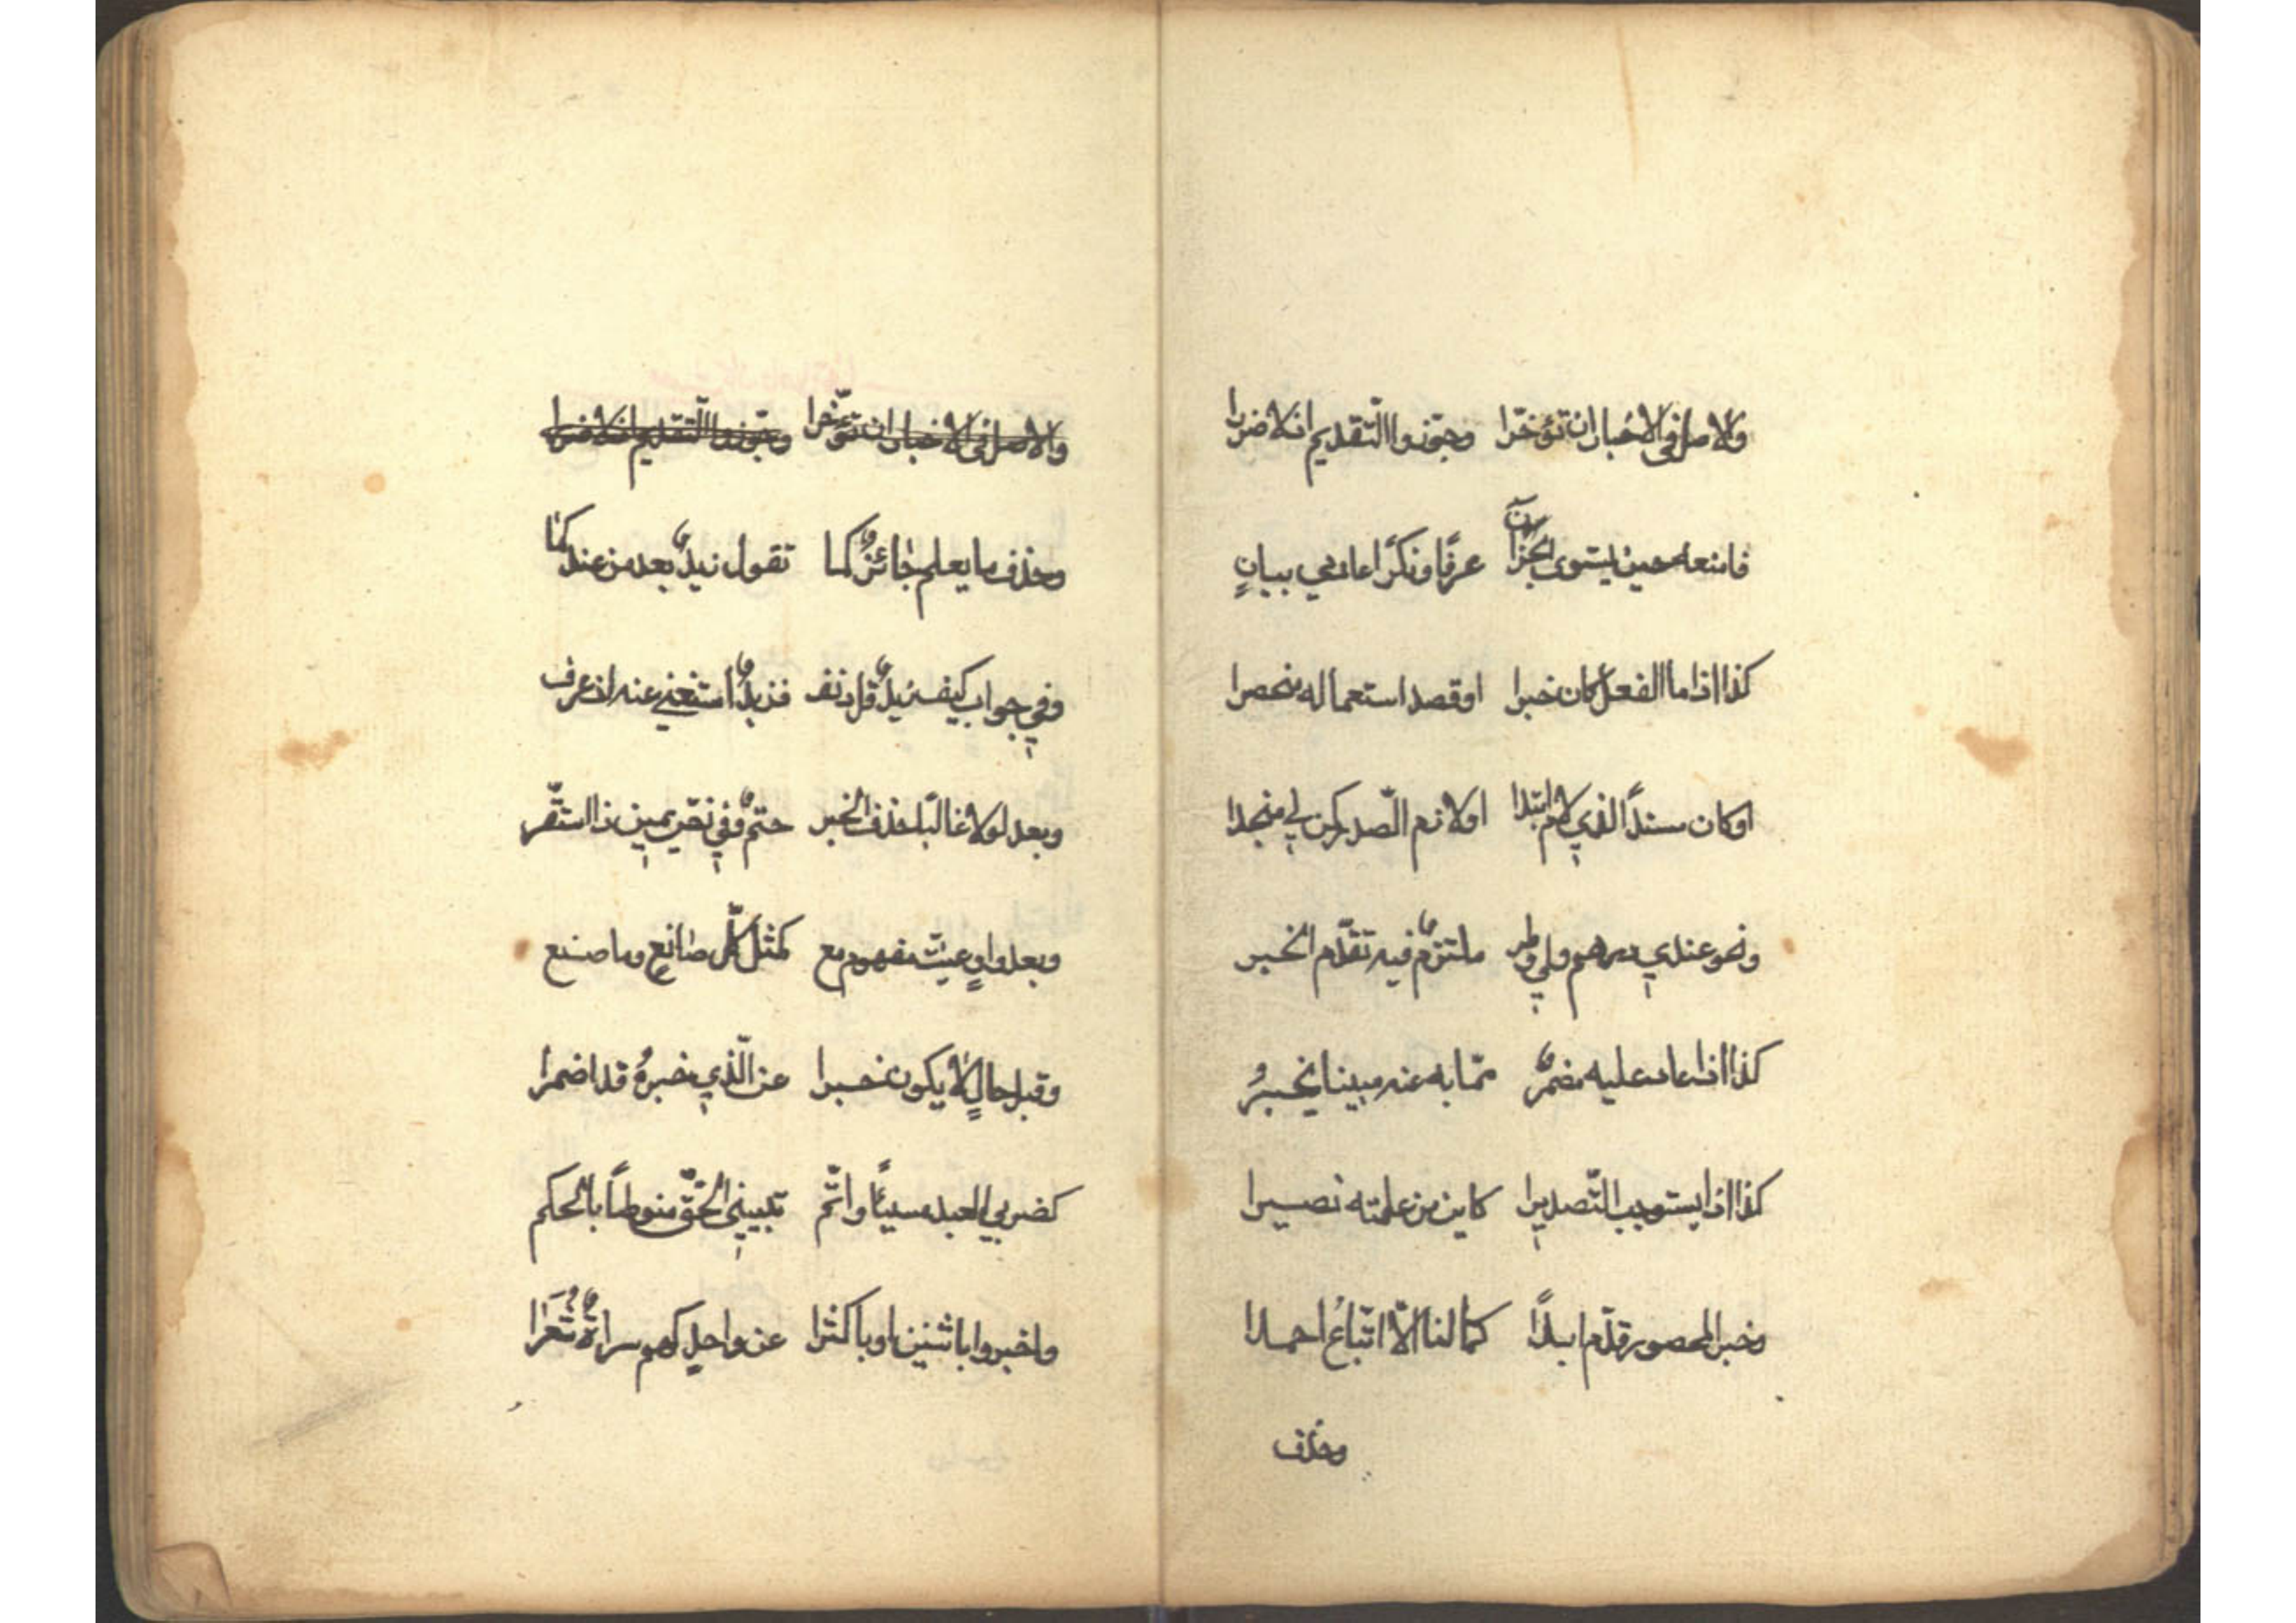 والاصل في الاخبار ان تؤخّرا وجوّزوا التّقديم اذ لا ضررا
فامنعه حين يستوى الجزآن عرفًا ونكرًا عادمي بيانٍ
كذا اذا ما الفعل كان خبرا او قصد استعماله منحصرا
او كان مسندًا لذي لام ابتدا او لازم الصّدر كمن لي منجدا
ونحو عندي درهم ولي وطر ملتزمٌ فيه تقدّم الخبر
كذا اذا عاد عليه مضمرٌ ممّا به عنه مبينا يخبرُ
كذا اذا يستوجب التّصديرا كاين من علمته نصيرا
وخبر المحصور قدّم ابدًا كما لنا الاّ اتّباعُ احمدا
وحذف
والاصل في الاخبار ان تؤخّرا وجوّزوا التّقديم اذ لا ضررا
وحذف ما يعلم جائزٌ كما تقول زيدٌ بعد من عندكما
وفي جواب كيف زيدٌ قل دنف فزيدٌ استغني عنه اذ عرف
وبعد لولا غالبًا حذف الخبر حتمٌ وفي نصّ يمين ذا استقّر
وبعد واوٍ عيّنت مفهوم مع كمثل كلّ صانعٍ وما صنع
وقبل حالٍ لا يكون خبرا عن الّذي خبرهُ قد اضمرا
كضربي العبد مسيئًا واتّم تبييني الحقّ منوطًا بالحكم
واخبروا باثنين او باكثرا عن واحدٍ كهم سراةٌ شُعَرا